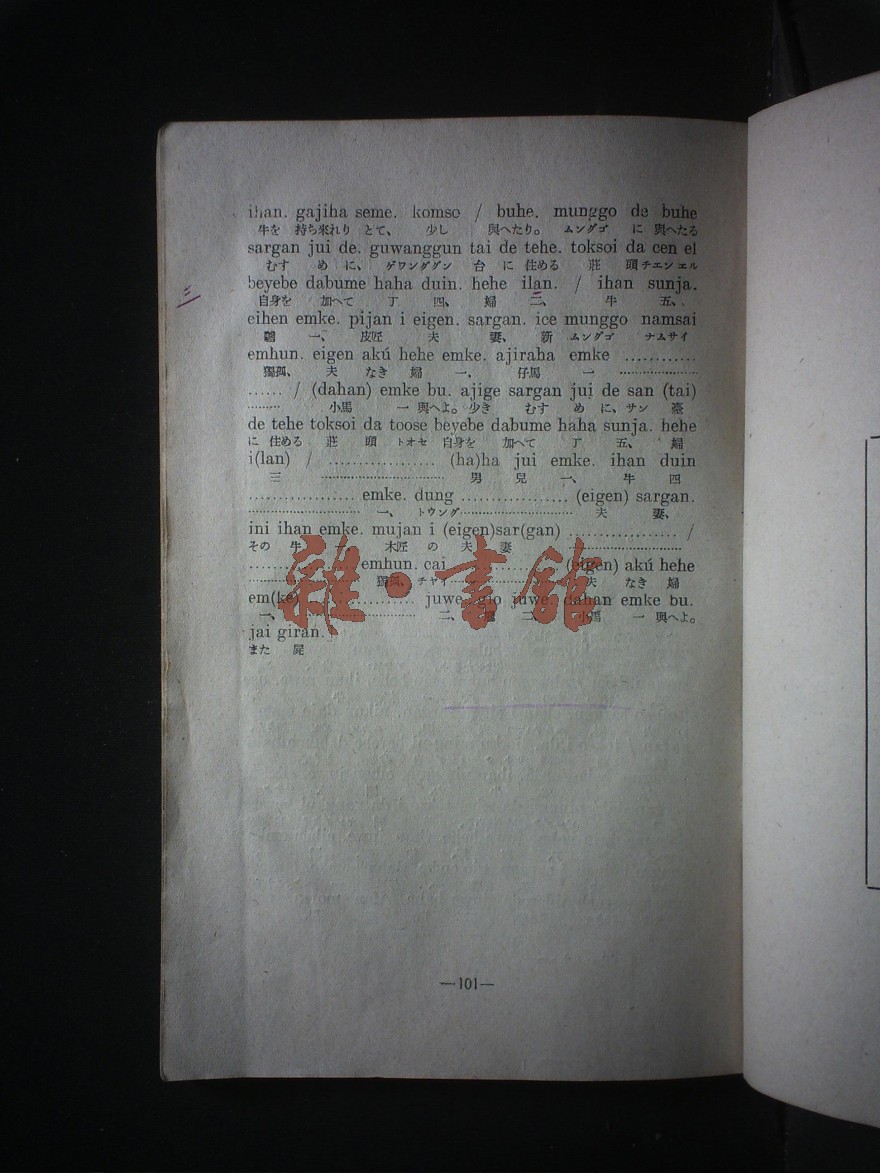 ihan. gajiha seme. komso / buhe. munggo de buhe
牛を 持ち來れり とて、 少し 與へたり。 ムングゴ に 與へたる
sargan jui de. guwanggun tai de tehe. toksoi da cen el
むす め に、 ゲワンググン 台 に 住める 莊 頭 チエンエル
beyebe dabume haha duin. hehe ilan. / ihan sunja.
自身を 加へて 丁 四、 婦 二、 牛 五、
三
eihen emke. pijan i eigen. sargan. ice munggo namsai
驢 一、 皮匠 夫 妻、 新 ムングゴ ナムサイ
emhun. eigen akú hehe emke. ajiraha emke …………
獨孤、 夫 なき 婦 一、 仔馬 一 …………
…… / (dahan) emke bu. ajige sargan jui de san (tai)
……… 小馬 一 與へよ。 少き むす め に、 サン 臺
de tehe toksoi da toose beyebe dabume haha sunja. hehe
に 住める 莊 頭 トオセ 自身を 加へて 丁 五、 婦
i(lan) / ……………… (ha)ha jui emke. ihan duin
三 ……………… 男 兒 一、 牛 四
……………… emke. dung ……………… (eigen) sargan.
……………… 一、 トウング ……………… 夫 妻、
ini ihan emke. mujan i (eigen)sar(gan) ……………… /
その 牛 一、 木匠 の 夫 妻 ………………
……………… emhun. cai ……………… (eigen) akú hehe
……………… 獨孤、 チヤイ ……………… 夫 なき 婦
em(ke) ……………… juwe. gio juwe. dahan emke bu.
一、 ……………… 二、 二、 小馬 一 與へよ。
jai giran.
また 屍
雜·書館
—101—